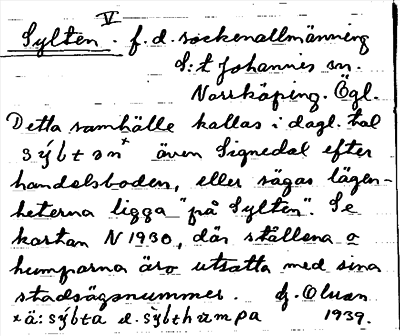 V
Sylten. f. d. sockenallmänning
S:t Johannis sn.
Norrköping. Ögl.
Detta samhälle kallas i dagl. tal
även Signedal efter
handelsboden, eller sägas lägen-
heterna ligga "på Sylten". Se
kartan N 1930, där ställena o
humparna äro utsatta med sina
stadsägonummer. Hj. Olsson
1939.